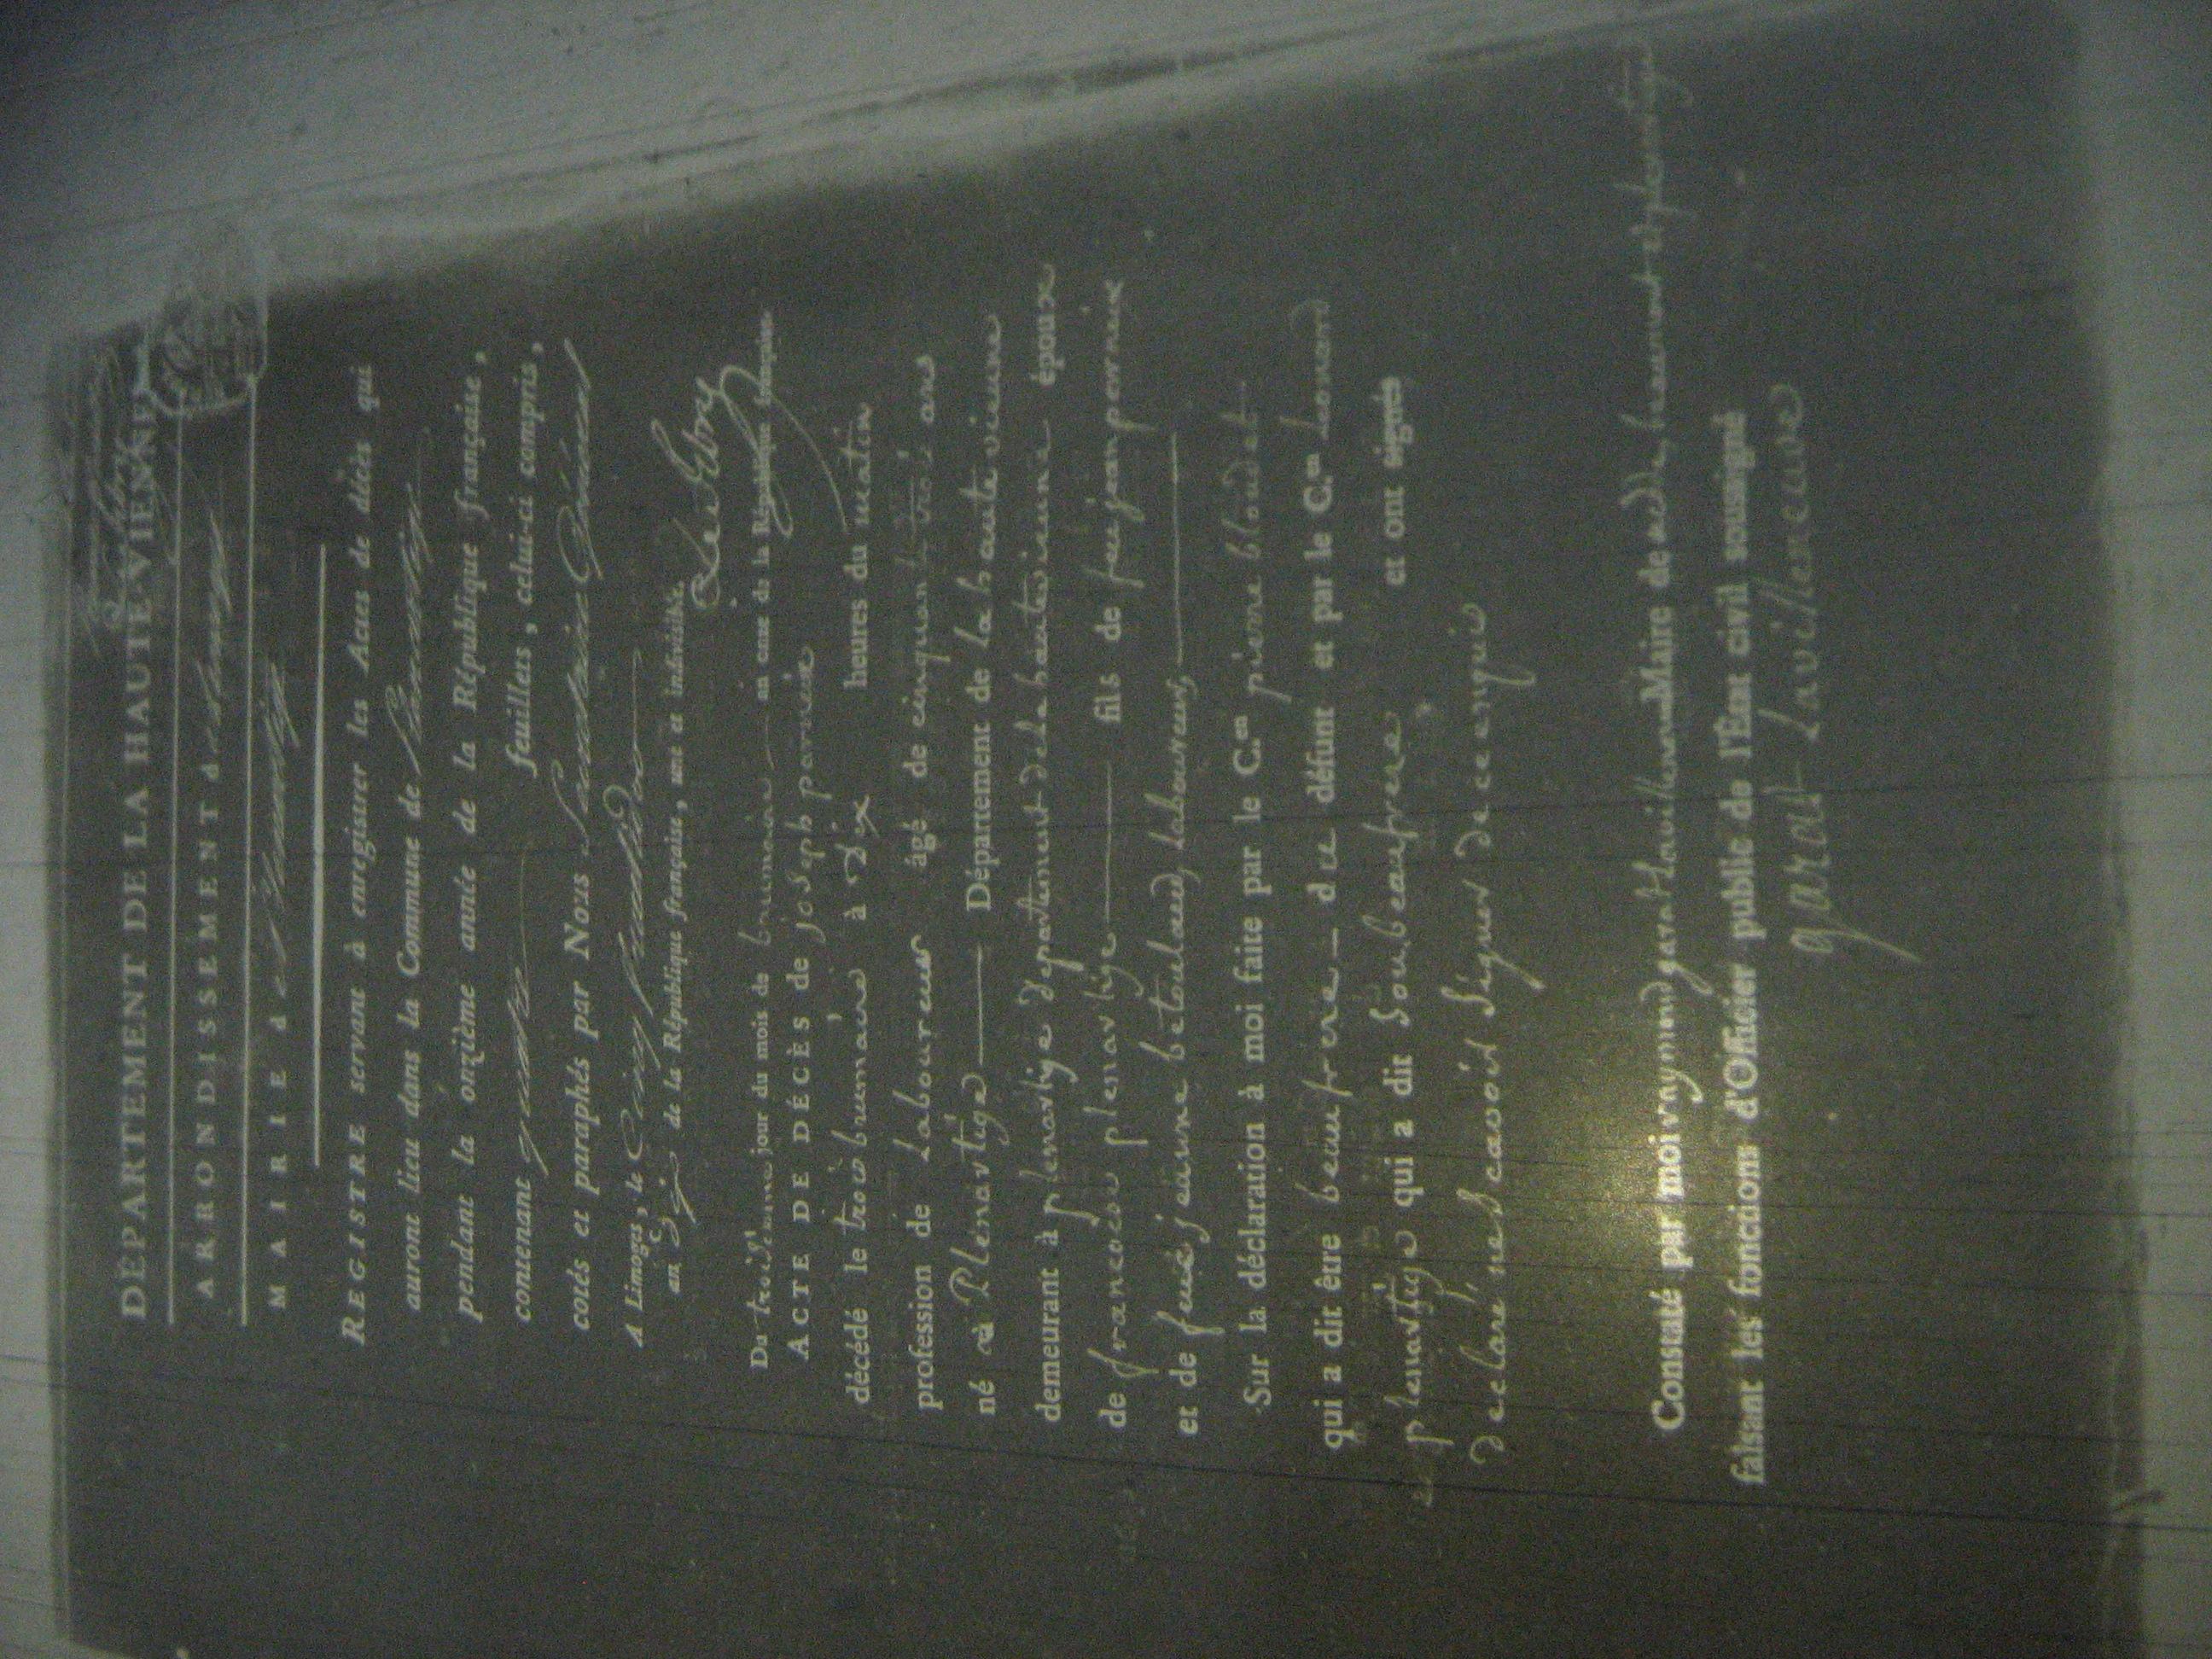 DÉPARTEMENT DE LA HAUTE-VIENNE
ARRONDISSEMENT de Limoges
MAIRIE de
REGISTRE servant à enregistrer les Actes de décès qui
auront lieu dans la Commune de Plenartige
pendant la onzième année de la République française,
contenant quatre feuillets, celui-ci compris,
cotés et paraphés par Nous Secretaire Général
A Limoges, le Cinq fructidor
an Dix de la République française, une et indivisible.
Du troisieme jour du mois de brumaire an onze de la République française.
ACTE DE DÉCÈS de joseph parneix
décédé le trois brumaire à Dix heures du matin
profession de Laboureur âgé de cinquante trois ans
né à Plenartige Département de la haute vienne
demeurant à plenartige departement de la haute vienne époux
de francoise plenartige fils de feu jean parneix
et de feue jeanne betoulaud, laboureur,
Sur la déclaration à moi faite par le C.en pierre bloudet
qui a dit être beaufrere du défunt et par le C.en Leonard
plenartige qui a dit Son beaufrere et ont signés
declaré ne Scavoir Signer de ce enquis
Constaté par moi raymond garat Lavilleneuve Maire de nedde, beaumont et plenartige
faisant les fonctions d'Officier public de l'État civil soussigné
garat Lavilleneuve